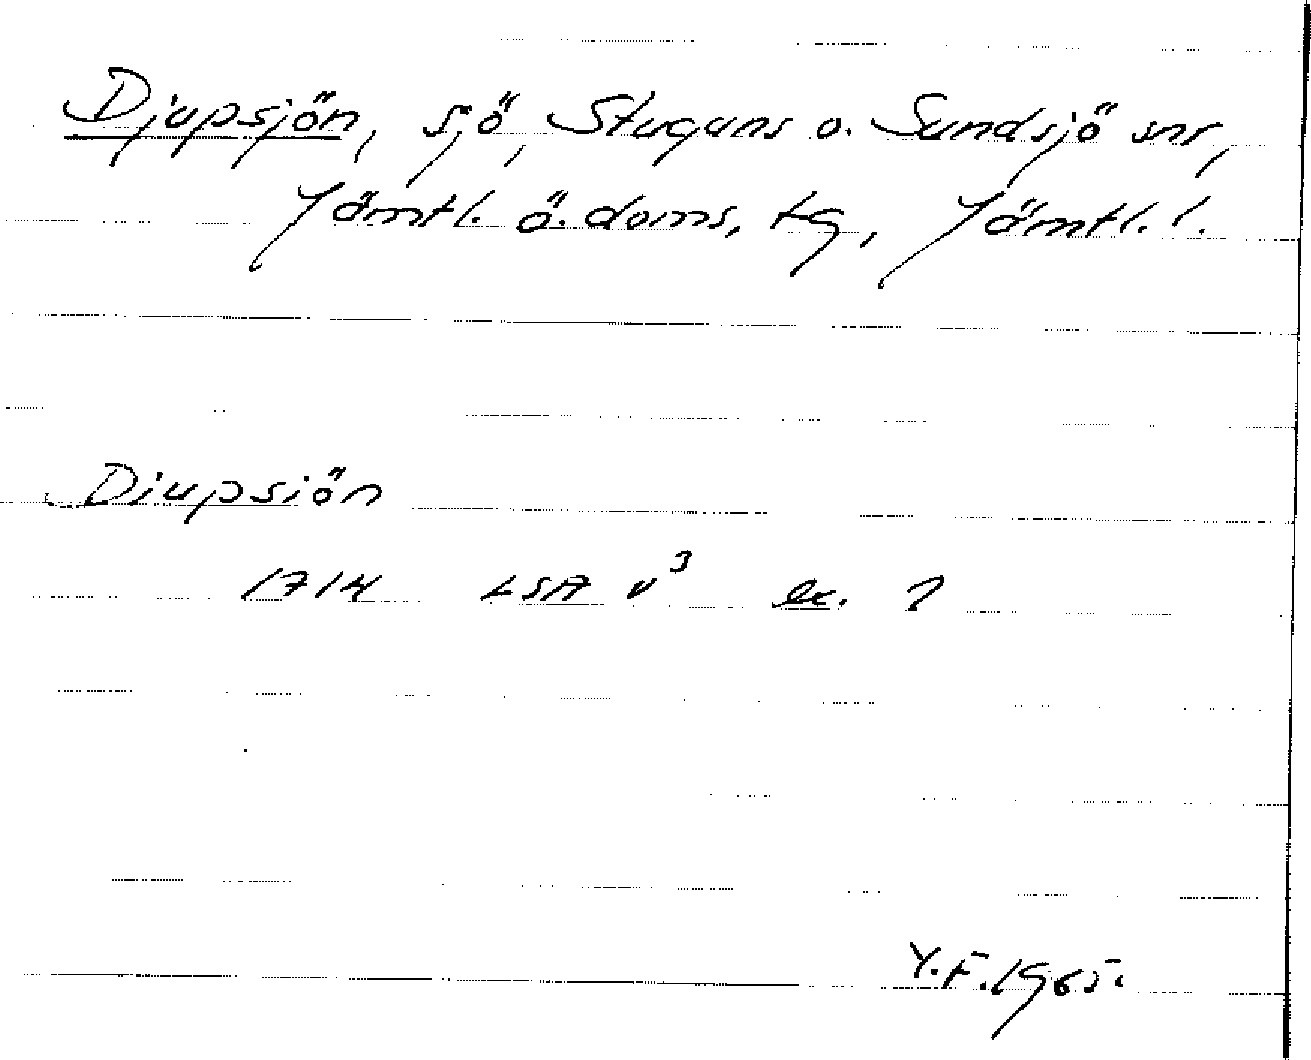 Djupsjön, sjö, Stuguns o. Sundsjö snr,
Jämtl. ö. doms. tg, Jämtl. l.
Diupsiön
1714 LSA v³ ex. 1
Y.F. 1965.